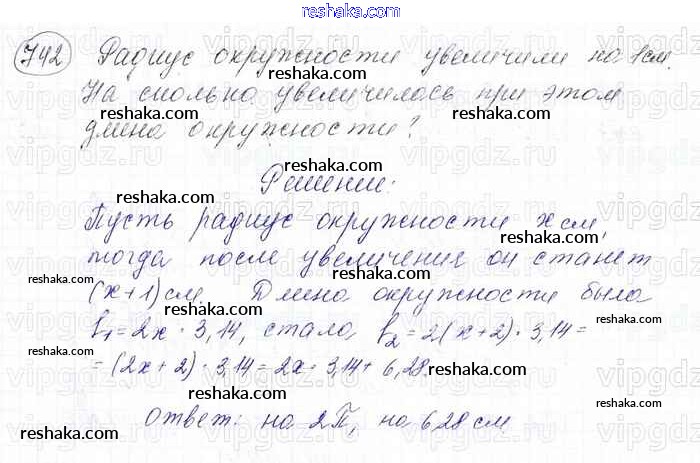 reshaka.com
742 Радиус окружности увеличили на 1см.
reshaka.com
На сколько увеличилась при этом
длина окружности?
reshaka.com reshaka.com
Решение:
reshaka.com
Пусть радиус окружности x см,
reshaka.com
тогда после увеличения он станет
reshaka.com reshaka.com
(x+1) см. Длина окружности была
reshaka.com
l₁=2x · 3,14, стала l₂=2(x+2) · 3,14=
reshaka.com reshaka.com
=(2x+2) · 3,14=2x · 3,14+6,28
reshaka.com
Ответ: на 2П, на 6,28 см
reshaka.com reshaka.com
vipgdz.ru